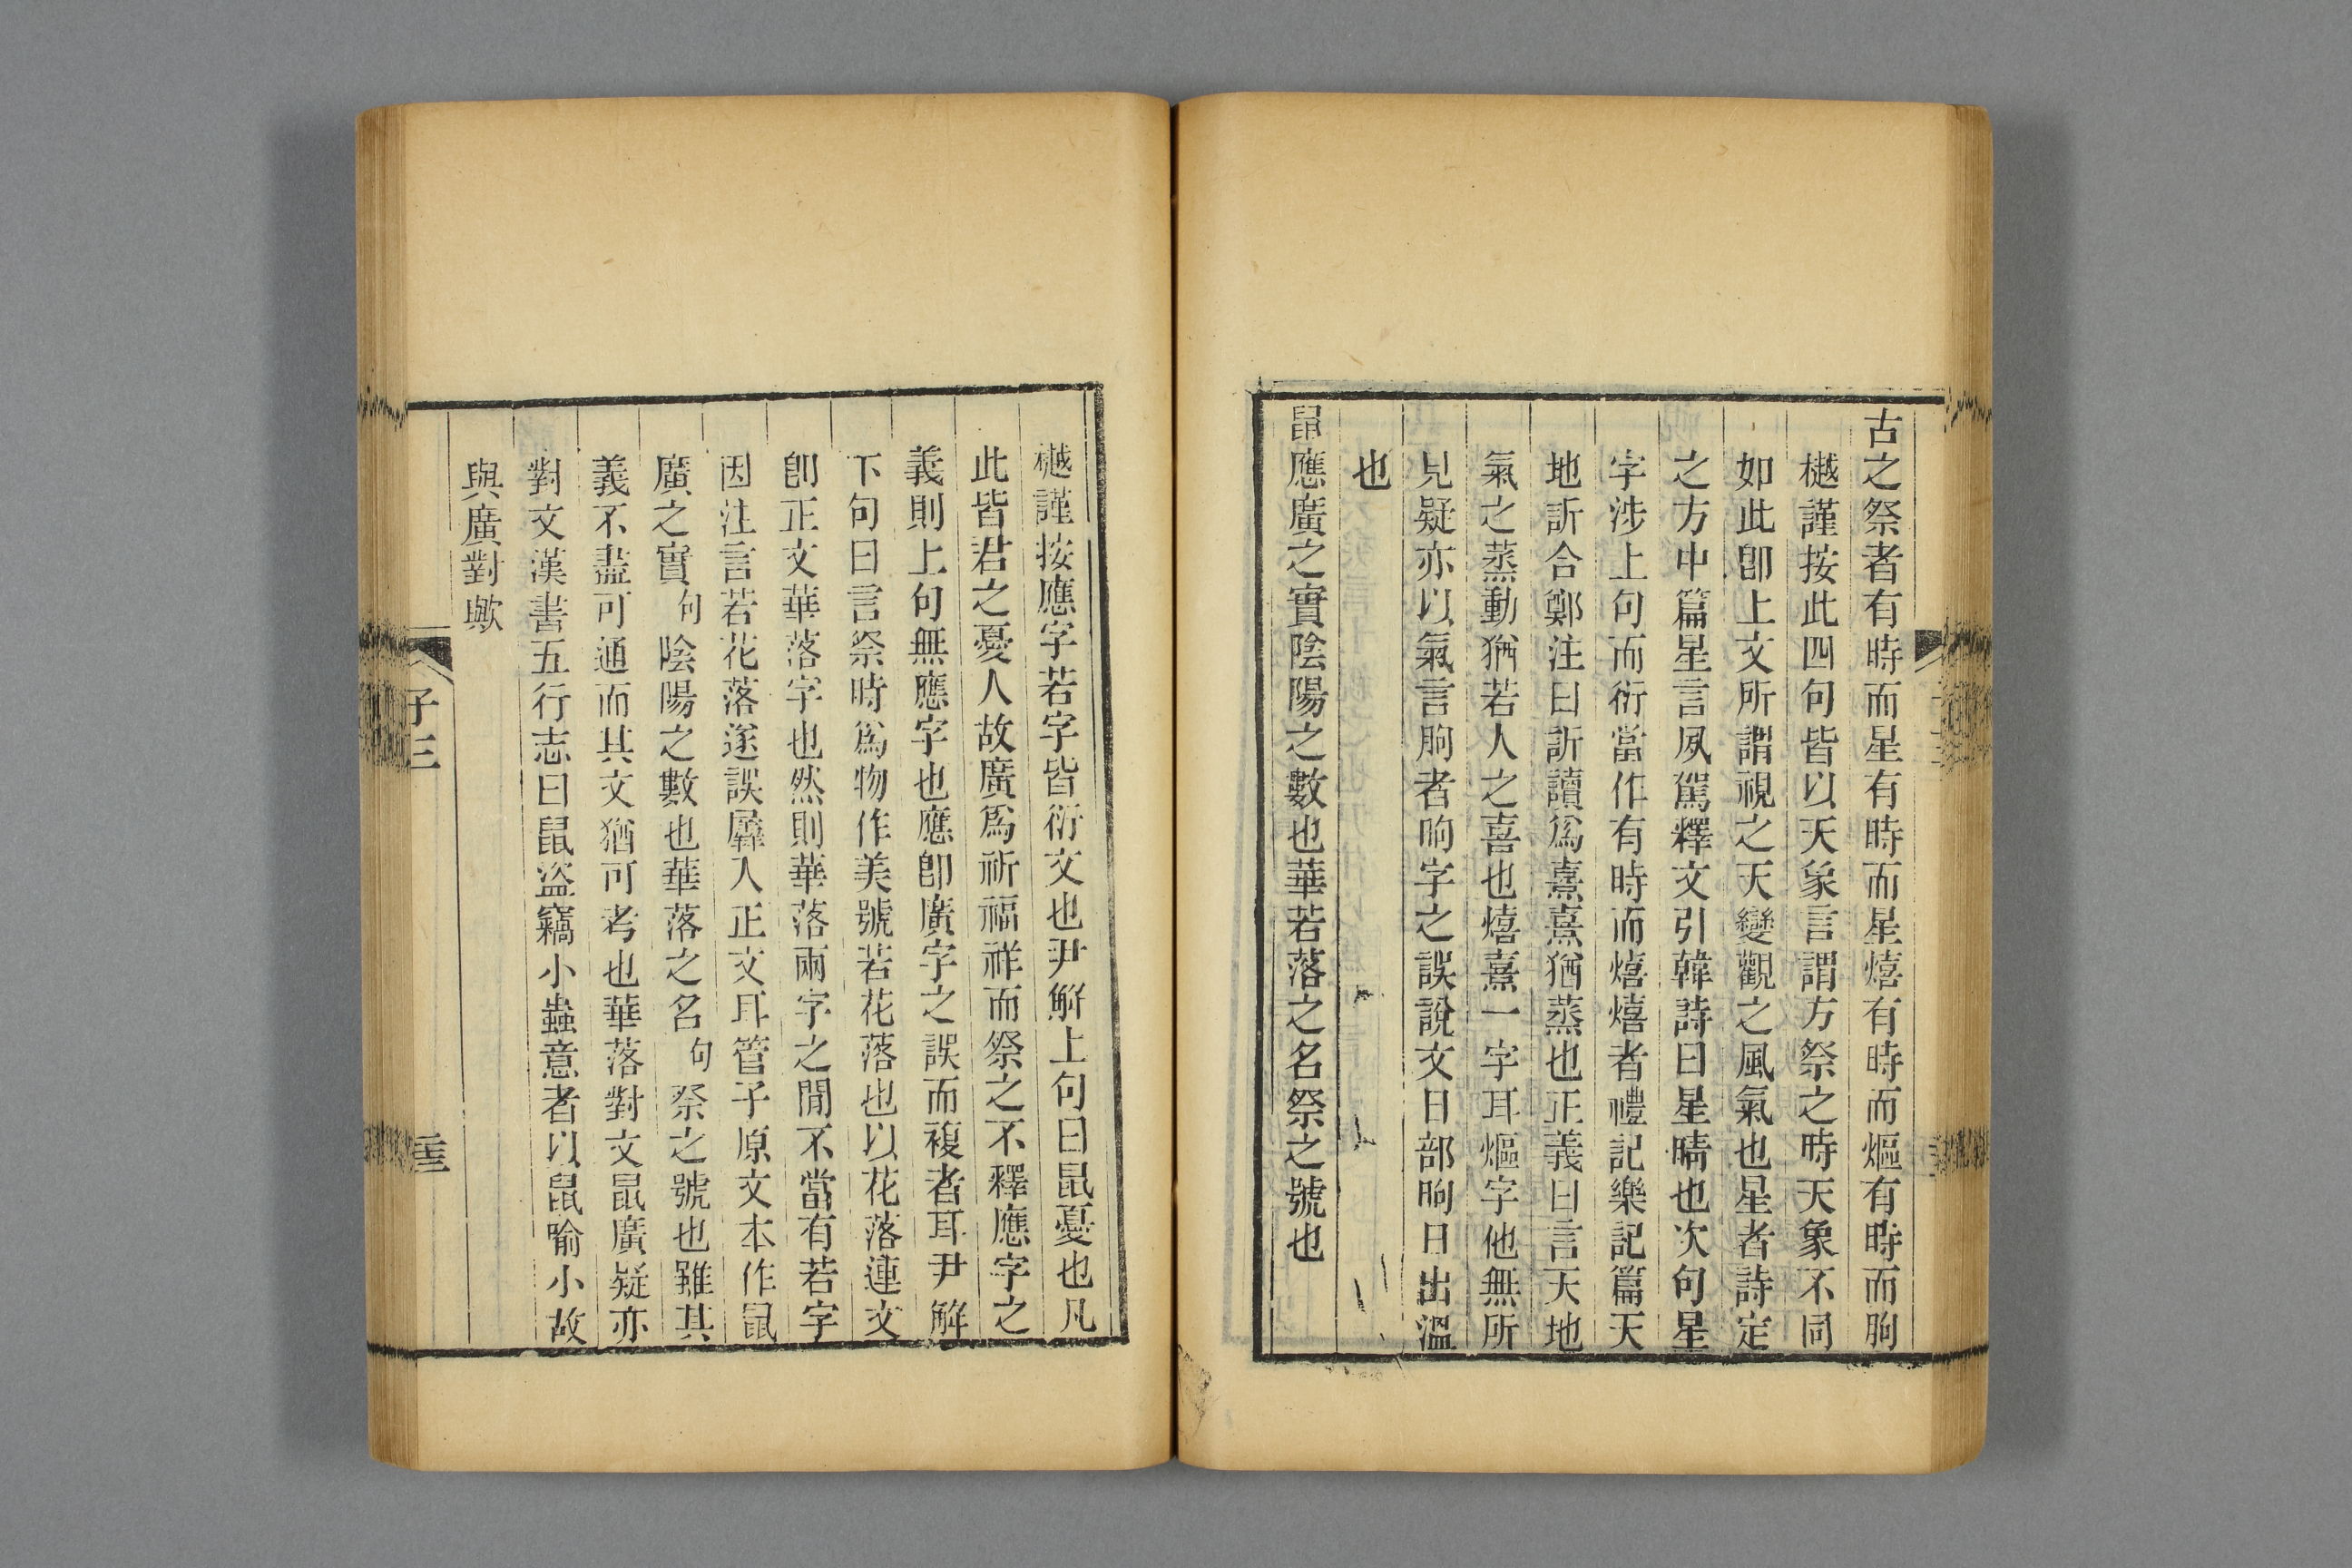 古之祭者有時而星有時而星熺有時而熰有時而朐
樾謹按此四句皆以天象言謂方祭之時天象不同
如此卽上文所謂視之天變觀之風氣也星者詩定
之方中篇星言夙駕釋文引韓詩曰星晴也次句星
字涉上句而衍當作有時而熺熺者禮記樂記篇天
地訢合鄭注曰訢讀爲熹熹猶蒸也正義曰言天地
氣之蒸動猶若人之喜也熺熹一字耳熰字他無所
見疑亦以氣言朐者昫字之誤說文日部昫日出溫
也
鼠應廣之實陰陽之數也華若落之名祭之號也
樾謹按應字若字皆衍文也尹解上句曰鼠憂也凡
此皆君之憂人故廣爲祈福祥而祭之不釋應字之
義則上句無應字也應卽廣字之誤而複者耳尹解
下句曰言祭時爲物作美號若花落也以花落連文
卽正文華落字也然則華落兩字之閒不當有若字
因注言若花落遂誤羼入正文耳管子原文本作鼠
廣之實句陰陽之數也華落之名句祭之號也雖其
義不盡可通而其文猶可考也華落對文鼠廣疑亦
對文漢書五行志曰鼠盜竊小蟲意者以鼠喻小故
與廣對歟
子三